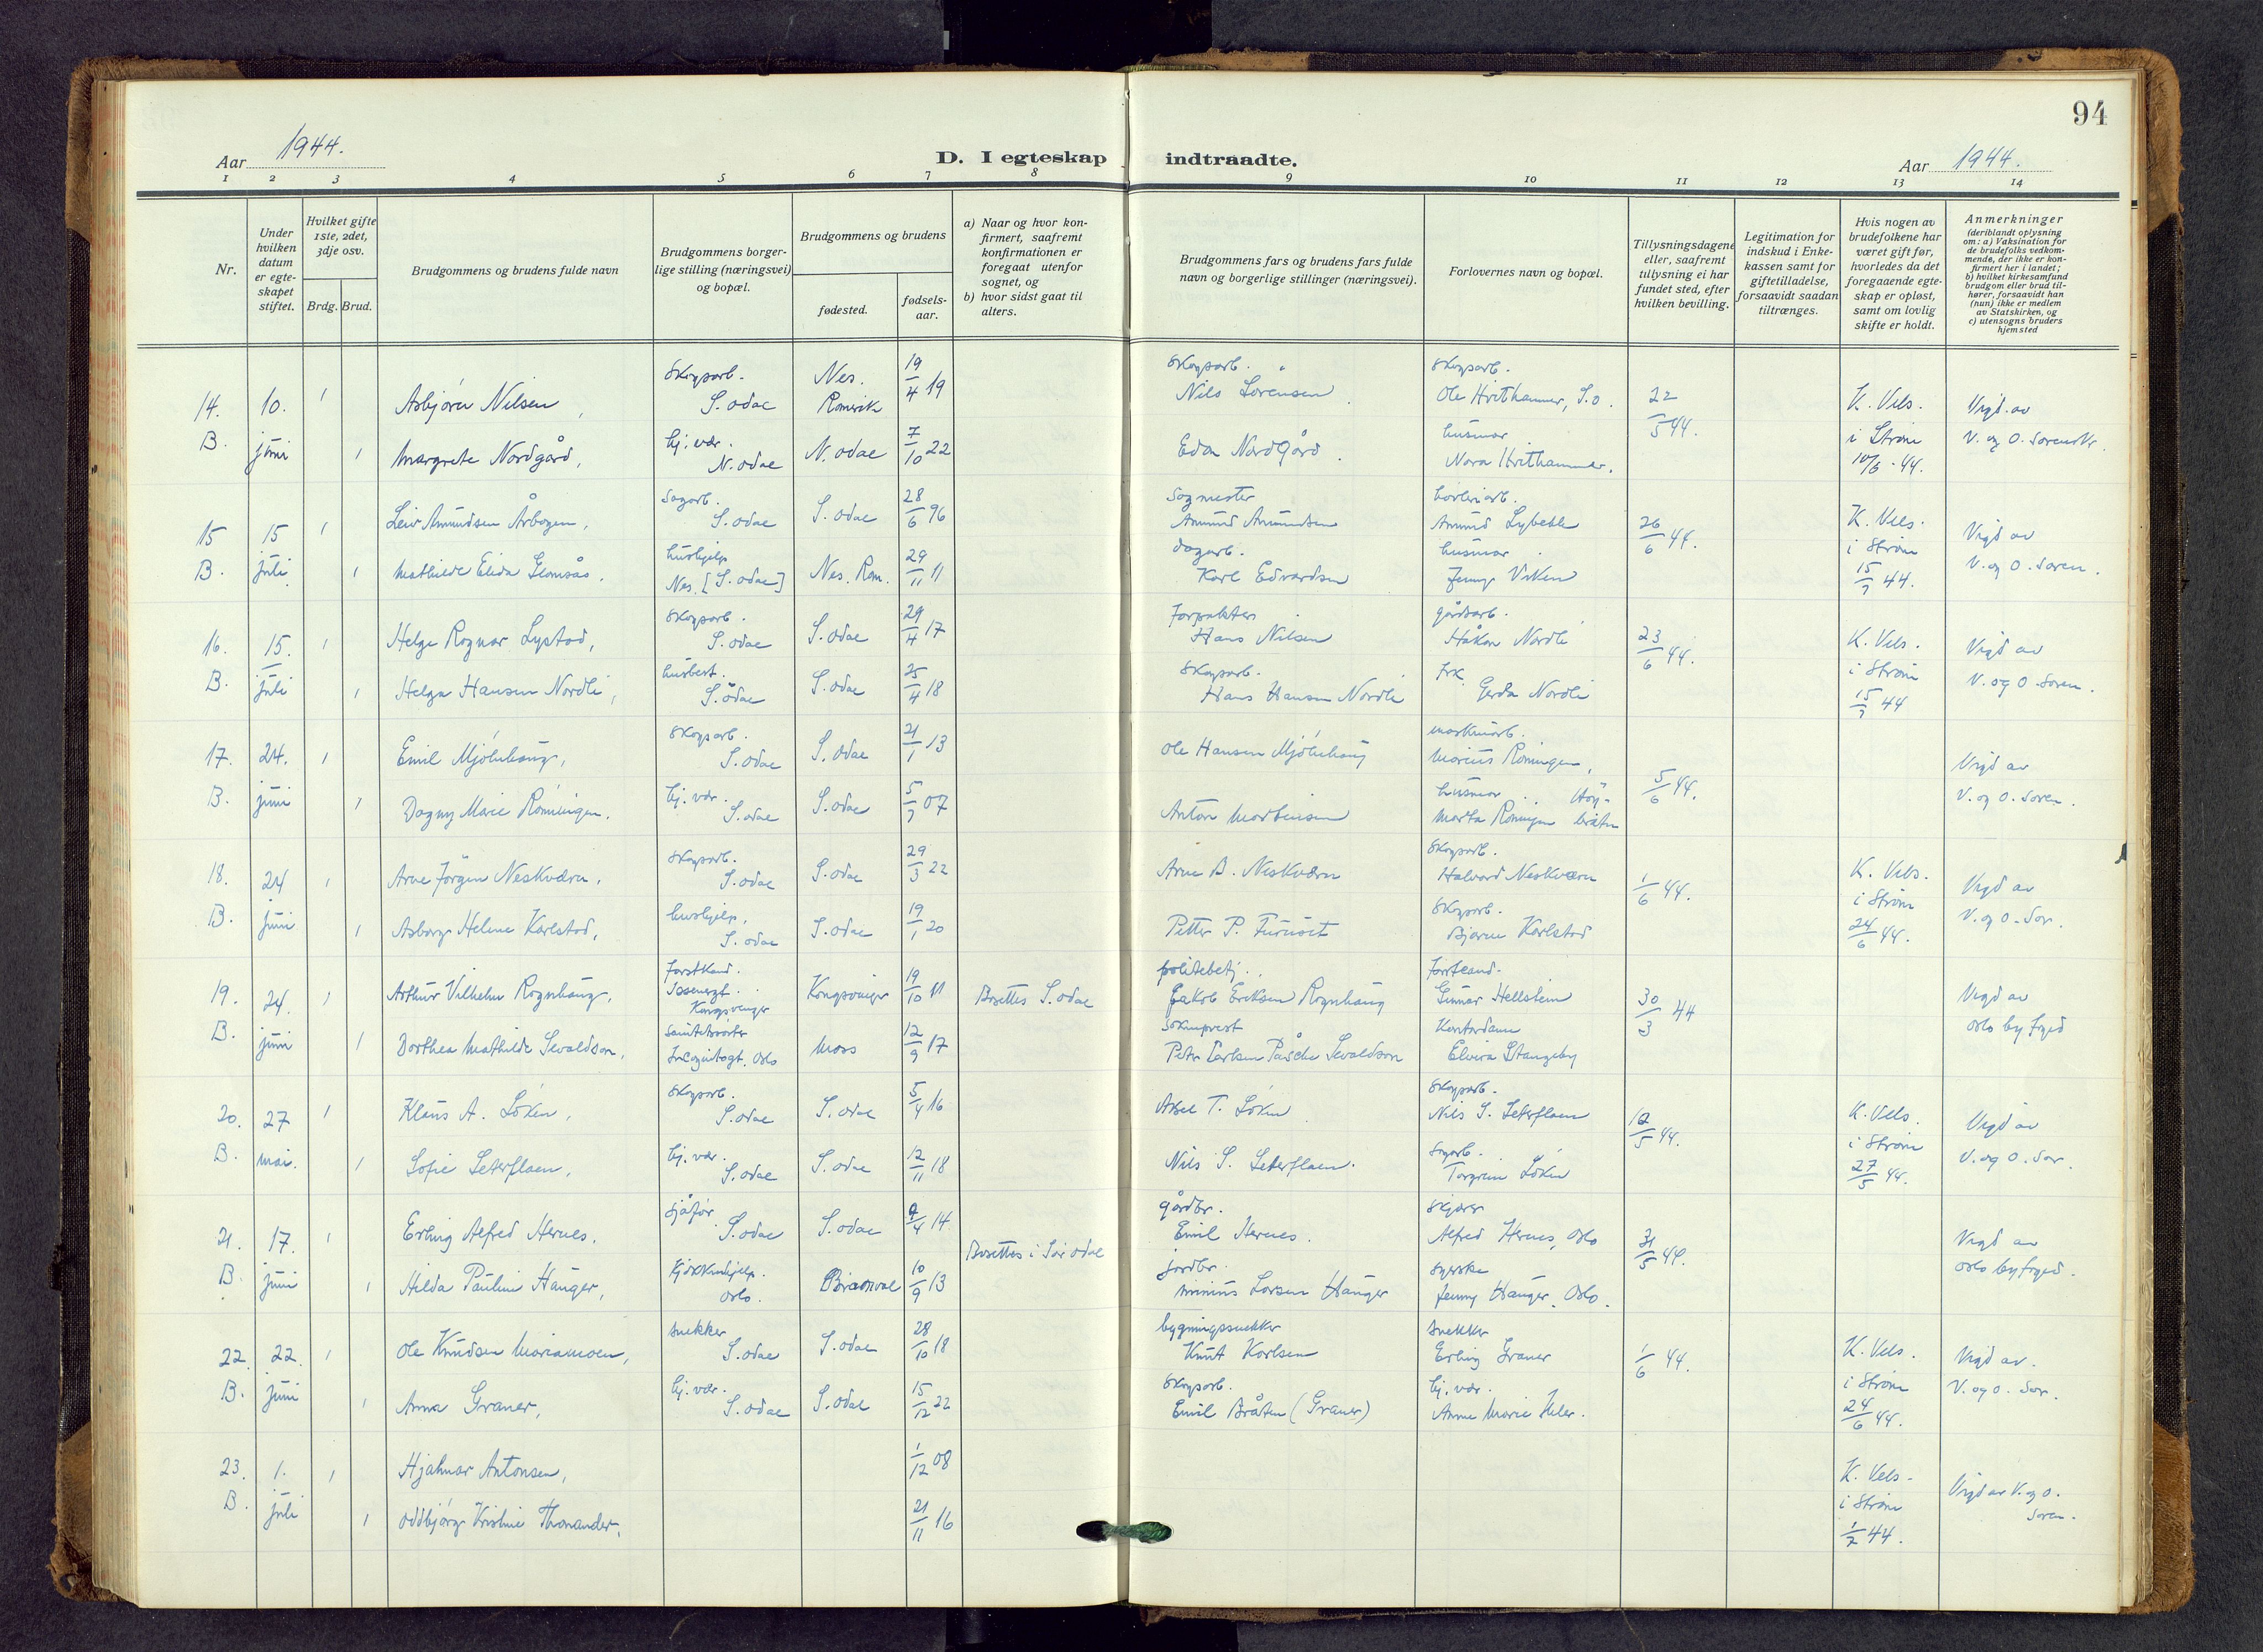 94
Aar 1944.
D. I egteskap indtraadte.
Aar 1944.
1 2 3 4 5 6 7 8 9 10 11 12 13 14
Nr.
Under hvilken datum er egteskapet stiftet.
Hvilket gifte 1ste, 2det, 3dje osv.
Brdg. Brud.
Brudgommens og brudens fulde navn
Brudgommens borgerlige stilling (næringsvei) og bopæl.
Brudgommens og brudens
fødested.
fødselsaar.
a) Naar og hvor konfirmert, saafremt konfirmationen er foregaat utenfor sognet, og
b) hvor sidst gaat til alters.
Brudgommens fars og brudens fars fulde navn og borgerlige stillinger (næringsvei).
Forlovernes navn og bopæl.
Tillysningsdagene eller, saafremt tillysning ei har fundet sted, efter hvilken bevilling.
Legitimation for indskud i Enkekassen samt for giftetilladelse, forsaavidt saadan tiltrænges.
Hvis nogen av brudefolkene har været gift før, hvorledes da det foregaaende egteskap er opløst, samt om lovlig skifte er holdt.
Anmerkninger (deriblandt oplysning om: a) Vaksination for de brudefolks vedkommende, der ikke er konfirmert her i landet; b) hvilket kirkesamfund brudgom eller brud tilhører, forsaavidt han (hun) ikke er medlem av Statskirken, og c) utensogns bruders hjemsted
14. 10. 1 Asbjörn Nilsen, Skogsarb. S. odal Nes. Romerik 19/4 19 Skogsarb. Nils Sörensen. Skogsarb. Ole Hvithammer, S.o. 22/5 44. K. Vels. Vigd av
B. juni 1 Margrete Nordgård, hj. vær. N. odal N. odal 7/10 22 Edon Nordgård. husmor Nora Hvithammer. i Ström 10/6-44. V. og O. Sorenskr.
15 15 1 Leiv Amundsen Årbogen, Sagarb. S. odal S. odal 28/6 96 Sagmester Amund Amundsen Amund Lybekk 26/6 44. K. Vels. Vigd av
B. juli 1 Mathilde Elida Glomsås. hushjelp Nes. [S. odal] Nes. Rom. 29/11 11 dagarb. Karl Edvardsen husmor Jenny Viken i Ström 15/7 44. V. og O. Soren.
16. 15. 1 Helge Ragnar Lystad, Skogsarb. S. odal S. odal 29/4 17 Forpakter Hans Nilsen gårdsarb. Håkon Nordli 23/6 44. K. Vels. Vigd av
B. juli 1 Helga Hansen Nordli, husbest. S. odal S. odal 25/4 18 Skogsarb. Hans Hansen Nordli frk Gerda Nordli i Ström 15/7 44 V. og O. Soren.
17. 24. 1 Emil Mjölnhaug, Skogsarb. S. odal S. odal 21/1 13 Ole Hansen Mjölnhaug Marius Röningen, 5/6 44. Vigd av
B. juni 1 Dagny Marie Römingen. hj. vær. S. odal S. odal 5/7 07 Anton Martinsen husmor Marta Röningen V. og O. Soren.
18. 24 1 Arne Jörgen Neskværn, Skogsarb. S. odal S. odal 29/3 22 Arne B. Neskværn Skogsarb. Halvard Neskværn 1/6 44. K. Vels. Vigd av
B. juni 1 Asborg Helene Karlstad, hushjelp, S. odal S. odal 19/1 20 Petter P. Furuset Skogsarb. Bjarne Karlstad i Ström 24/6 44. V. og O. Sor.
19. 24. 1 Arthur Vilhelm Rognhaug, Forstkand. Kongsvinger Kongsvinger 19/10 11 Bosettes S. odal politibetj. Jakob Eriksen Rognhaug Forstcand. Gunnar Hellstein 30/3 44 Vigd av
B. juni 1 Dorthea Mathilde Sevaldson. Incognitogt. Oslo Moss 12/9 17 Sokneprest Peter Carlsen Pasche Sevaldson Kontordame Elvira Stangeby Oslo byfogd
20. 27 1 Klaus A. Löken, Skogsarb. S. odal S. odal 5/4 16 Aksel T. Löken Skogsarb. Nils S. Seterflaen 12/5 44. K. Vels. Vigd av
B. mai. 1 Sofie Seterflaen, hj. vær. S. odal S. odal 12/11 18 Nils S. Seterflaen. Torgrim Löken i Ström 27/5 44. V. og O. Sor.
21. 17. 1 Erling Alfred Hernes. sjåför S. odal S. odal 9/4 14 Bosettes i Sör odal gårdbr. Emil Hernes. Alfred Hernes, Oslo 31/5 44. Vigd av
B. juni 1 Hilda Pauline Hanger, Kjökkenhjelp. Oslo. 10/9 13 jordbr. Larsen Hanger syerske Jenny Hanger. Oslo. Oslo byfogd.
22. 22. 1 Ole Knudsen Mariamoen, snekker S. odal S. odal 28/10 18 bygningssnekker Knut Karlsen Snekker Erling Graner 1/6 44. K. Vels. Vigd av.
B. juni 1 Anna Graner, hj. vær. S. odal S. odal 15/12 22 Skogsarb. Emil Bråten (Graner) hj. vær. Anne Marie i Ström 24/6 44. V. og O. Sor.
23. 1. 1 Hjalmar Antonsen, 1/12 08 K. Vels. Vigd av V. og O.
B. juli 1 Oddbjörg Kristine Thonander, 21/11 16 i Ström 1/7 44. Soren.